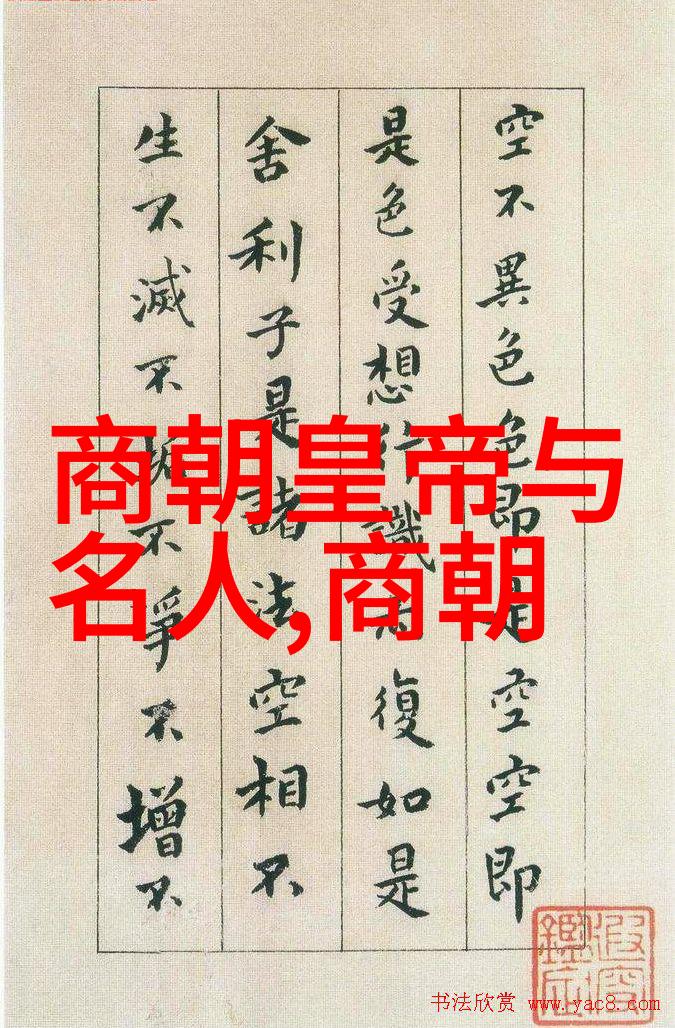 空不異色色即是空空即
是色受想行識亦復如是
舍利子是諸法空相不
生不滅不垢不淨不增不
商朝皇帝与
名人,商朝
书法欣赏 www.yac8.com